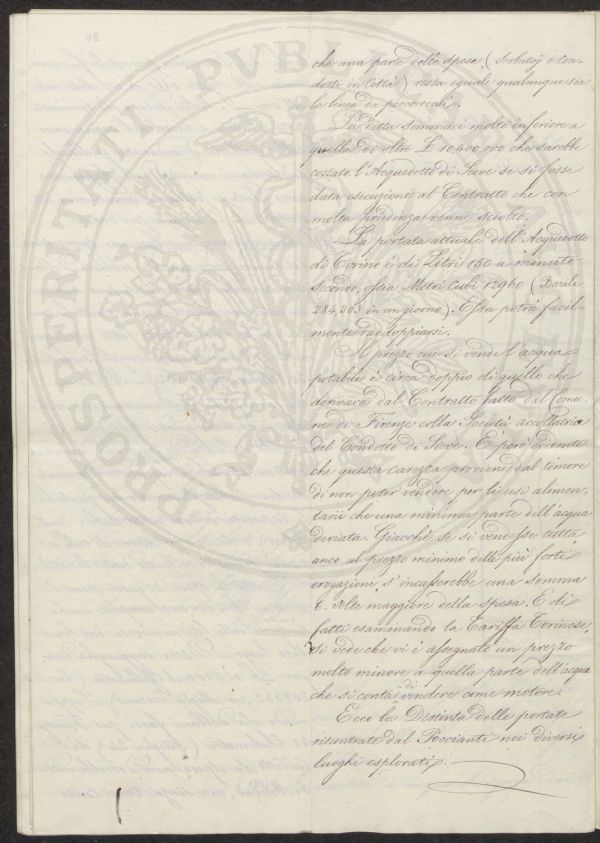 PROSPERITATI PVBLI
che una parte delle spese (Serbatoj e Con-
dotti in Città) resta eguale qualunque sia
la linea da percorrersi.
La detta somma è molto inferiore a
quella di oltre £ 10,400,000 che sarebbe
costato l'Acquedotto di Sieve se si fosse
data esecuzione al Contratto che con
molta prudenza venne sciolto.
La portata attuale dell'Acquedotto
di Torino è di Litri 150 a minuto
secondo, ossia Metri Cubi 12960 (Barili
284,303 in un giorno). Essa potrà facil-
mente raddoppiarsi.
Il prezzo cui si vende l'acqua
potabile è circa doppio di quello che
derivava dal Contratto fatto dal Comu-
ne di Firenze colla Società accollatrice
del Condotto di Sieve. È però evidente
che questa carezza proviene dal timore
di non poter vendere per li usi alimen-
tarii che una minima parte dell'acqua
deviata. Giacchè se si vendesse tutta
anco al prezzo minimo delle più forti
erogazioni, s'incasserebbe una somma
6. volte maggiore della spesa. E di
fatti esaminando la Tariffa Torinese,
si vede che vi è assegnato un prezzo
molto minore a quella parte dell'acqua
che si conta di vendere come motore.
Ecco la Distinta delle portate
riscontrate dal Poccianti nei diversi
luoghi esplorati.